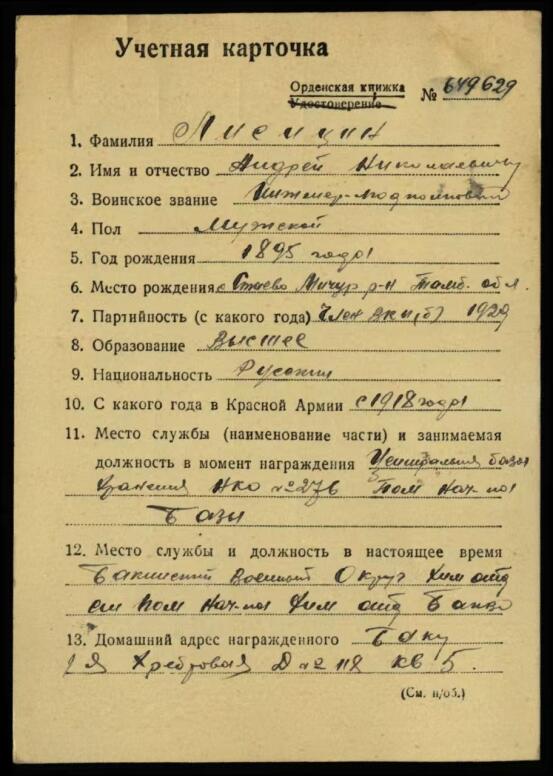 Учетная карточка
Орденская книжка № 649629
Удостоверение
1. Фамилия Лисицин
2. Имя и отчество Андрей Николаевич
3. Воинское звание Инженер-подполковник
4. Пол Мужской
5. Год рождения 1895 года
6. Место рождения с Стаево Мичур р-н Тамб. обл.
7. Партийность (с какого года) Член ВКП(б) 1929
8. Образование Высшее
9. Национальность Русский
10. С какого года в Красной Армии с 1918 года
11. Место службы (наименование части) и занимаемая
должность в момент награждения Центральная база
хранения НКО № 276 Пом Нач-ка
Базы
12. Место службы и должность в настоящее время
Бакинский Военный Округ Хим отд
ст Пом Нач-ка Хим отд
13. Домашний адрес награжденного Баку
Д № 118 кв 5.
(См. н/об.)